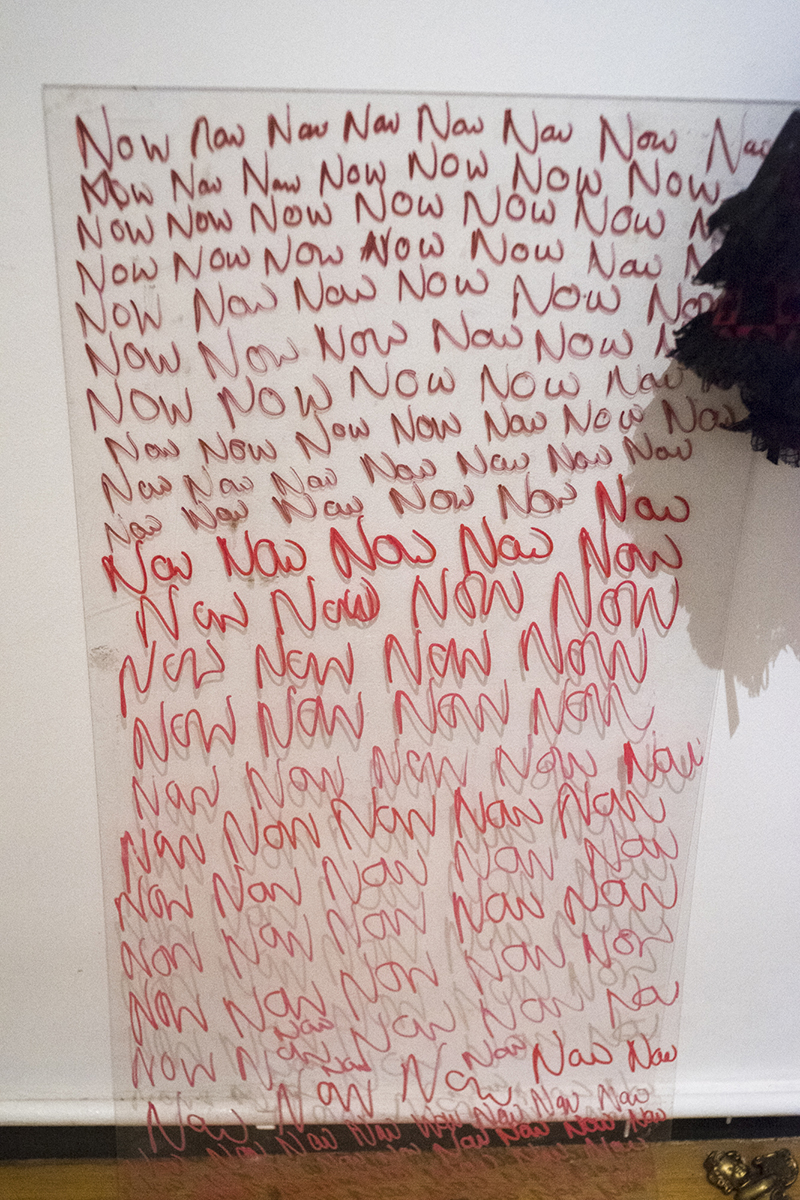 Now Now Now Now Now Now Now Now
Now Now Now Now Now Now Now
Now Now Now Now Now Now
Now Now Now Now Now Now
Now Now Now Now Now Now
Now Now Now Now Now
Now Now Now Now Now
Now Now Now Now Now Now Now
Now Now Now Now Now Now Now
Now Now Now Now Now Now
Now Now Now Now Now
Now Now Now Now
Now Now Now Now
Now Now Now Now
Now Now Now Now Now
Now Now Now Now Now
Now Now Now Now Now
Now Now Now Now Now
Now Now Now Now Now
Now Now Now Now No
Now Now Now Now Now
Now Now Now Now Now Now Now
Now Now Now Now Now Now Now